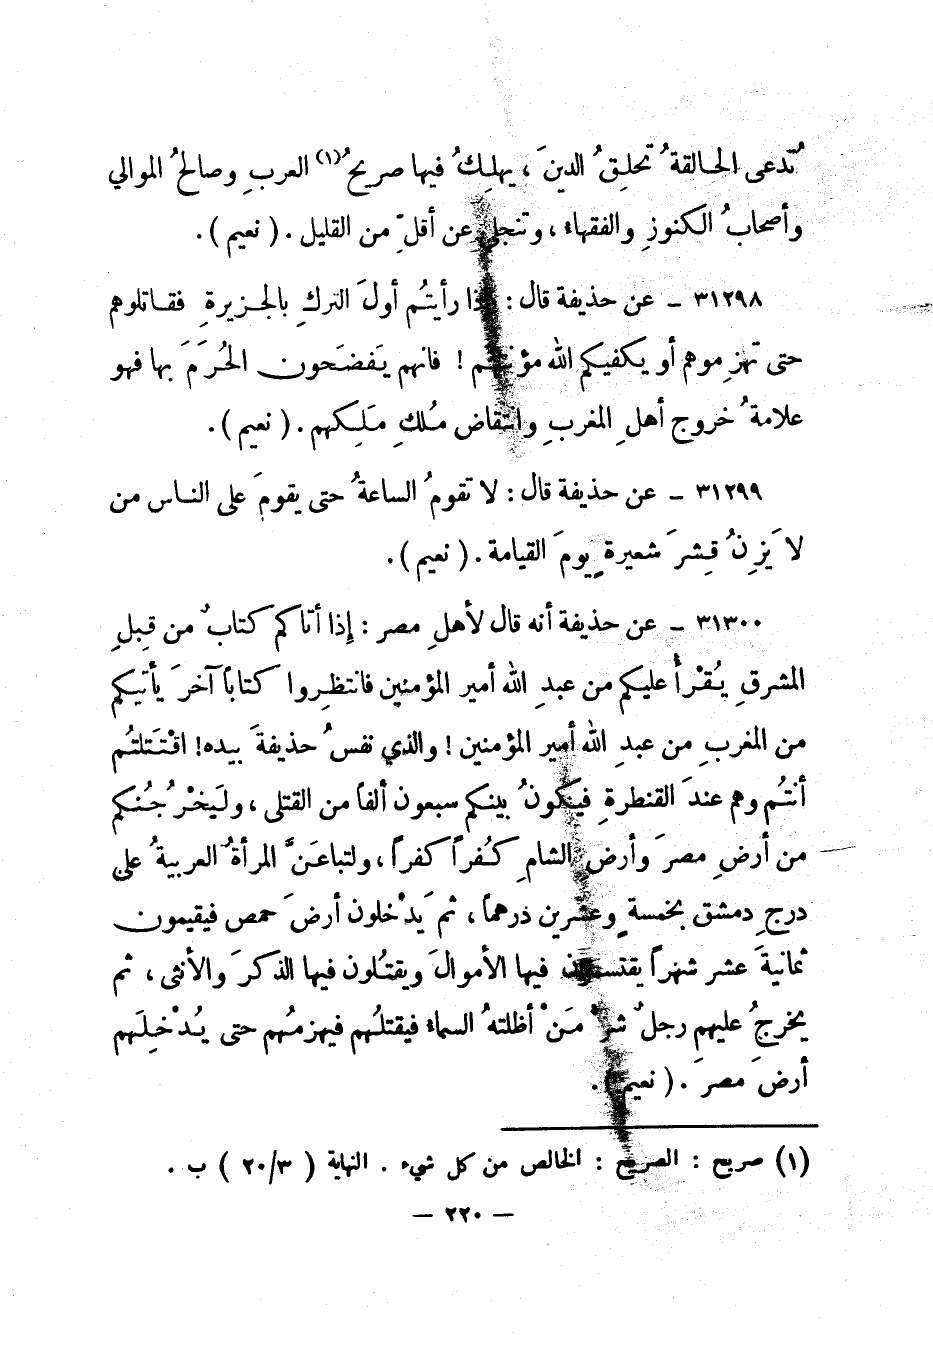 تُدعى الحالقةُ تحلِقُ الدينَ ، يهلِكُ فيها صريحُ(١) العربِ وصالحُ الموالي
وأصحابُ الكنوزِ والفقهاء ، وتنجلي عن أقلِّ من القليل . ( نعيم ) .
٣١٢٩٨ – عن حذيفة قال : إذا رأيتُم أولَ التركِ بالجزيرةِ فقاتلوهم
حتى تهزِموهم أو يكفيكم الله مؤنتهم ! فانهم يَفضَحون الحُرَمَ بها فهو
علامةُ خروج أهلِ المغربِ وانتقاض مُلكِ مَلِكهم . ( نعيم ) .
٣١٢٩٩ – عن حذيفة قال : لا تقومُ الساعةُ حتى يقومَ على الناس من
لا يَزِنُ قِشرَ شعيرةٍ يومَ القيامة . ( نعيم ) .
٣١٣٠٠ – عن حذيفة أنه قال لأهلِ مصر : إذا أتاكم كتابٌ من قِبلِ
المشرقِ يُقْرأُ عليكم من عبدِ الله أمير المؤمنين فانتظِروا كتاباً آخرَ يأتيكم
من المغربِ من عبدِ الله أمير المؤمنين ! والذي نفسُ حذيفةَ بيده ! اقْتَتلتُم
أنتُم وهم عندَ القنطرةِ فيكونُ بينكم سبعون ألفاً من القتلى ، وليَخْرُجُنكم
من أرضِ مصرَ وأرضِ الشامِ كُفراً كفراً ، ولتباعَنَّ المرأةُ العربيةُ على
درجِ دمشق بخمسةٍ وعشرين درهماً ، ثم يَدْخلون أرضَ حمص فيقيمون
ثمانيةَ عشر شهراً يقتسمون فيها الأموالَ ويقتُلون فيها الذكرَ والأنثى ، ثم
يخرجُ عليهم رجلٌ شرُّ مَنْ أظلتهُ السماء فيقتلُهم فيهزمُهم حتى يُدْخِلَهم
أرضَ مصرَ . ( نعيم ) .
(١) صريح : الصريح : الخالص من كل شيء . النهاية ( ٢٠/٣ ) ب .
– ٢٢٠ –